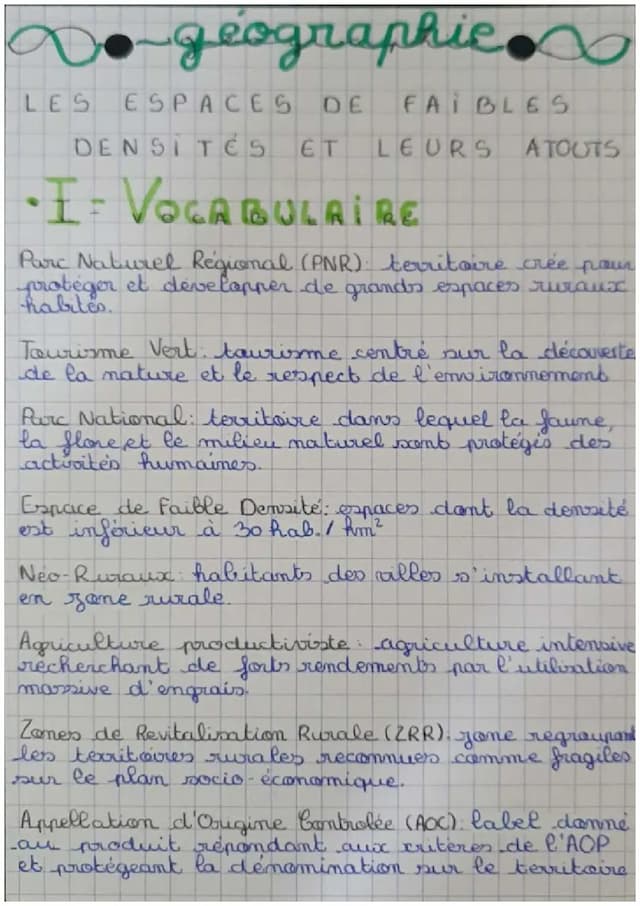 géographie
LES ESPACES DE FAiBLES
DENSiTÉS ET LEURS ATOUTS
• I = VOCABULAiRE
Parc Naturel Régional (PNR): territoire crée pour
protéger et développer de grands espaces ruraux
habités.
Tourisme Vert: tourisme centré sur la découverte
de la nature et le respect de l'environnement
Parc National: territoire dans lequel la faune,
la flore et le milieu naturel sont protégés des
activités humaines.
Espace de Faible Densité: espaces dont la densité
est inférieur à 30 hab. / km²
Néo-Ruraux: habitants des villes s'installant
en zone rurale.
Agriculture productiviste: agriculture intensive
recherchant de forts rendements par l'utilisation
massive d'engrais.
Zones de Revitalisation Rurale (ZRR): zone regroupant
les territoires rurales reconnues comme fragiles
sur le plan socio-économique.
Appellation d'Origine Controlée (AOC): label donné
au produit répondant aux critères de l'AOP
et protégeant la dénomination sur le territoire